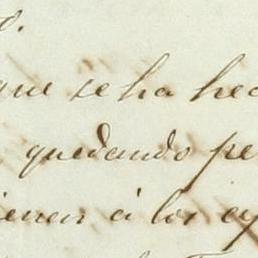 que se ha hec
quedando pe
ienen á los ey